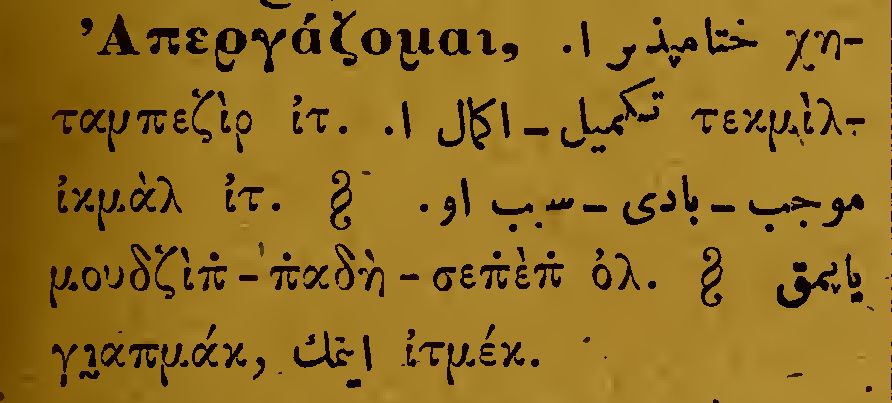 Ἀπεργάζομαι, ختامپذیر ا. χη-
ταμπεζὶρ ἰτ. تكمیل ـ اكمال ا. τεκμὶλ-
ἰκμὰλ ἰτ. § موجب ـ بادی ـ سبب او.
μουδζὶπ̇ - π̇αδὴ - σεπ̇ὲπ̇ ὀλ. § یاپمق
γι̮απμάκ, ایتمك ἰτμέκ.